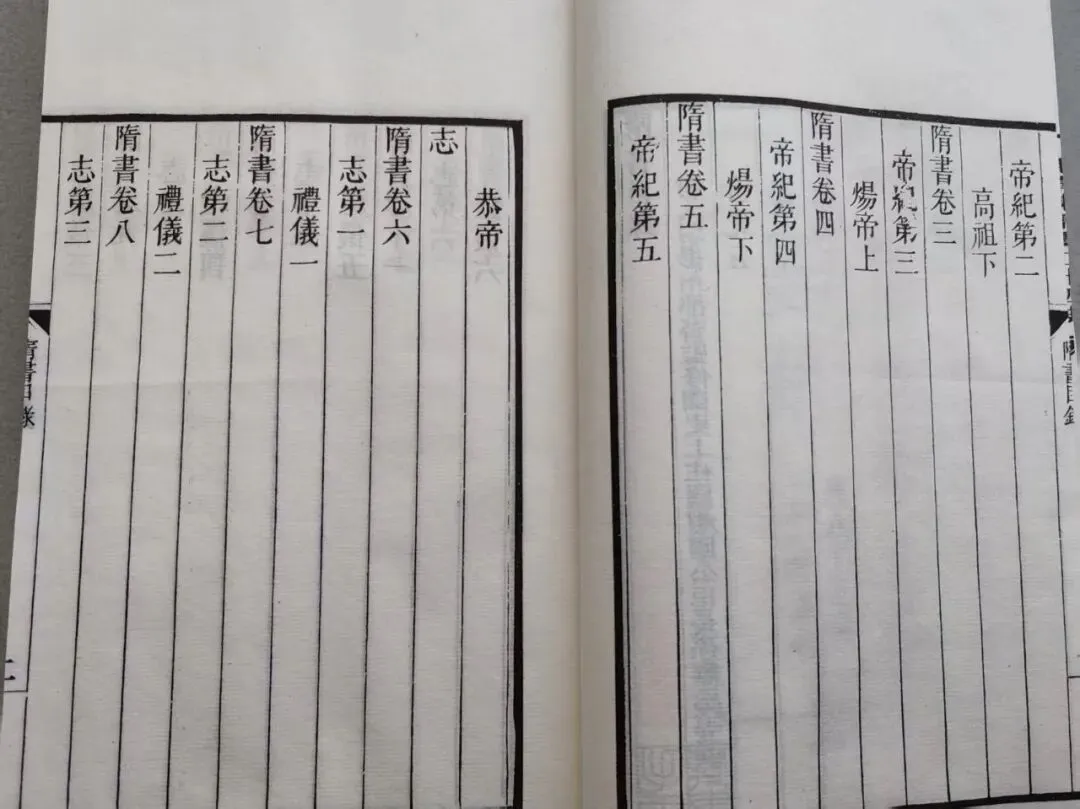 帝紀第二
高祖下
隋書卷三
帝紀第三
煬帝上
隋書卷四
帝紀第四
煬帝下
隋書卷五
帝紀第五
隋書目錄
恭帝
志
隋書卷六
志第一
禮儀一
隋書卷七
志第二
禮儀二
隋書卷八
志第三
隋書目錄
二